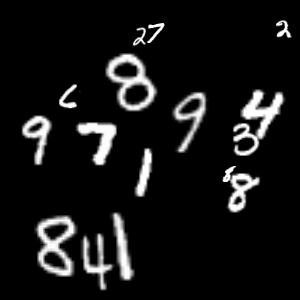 27 2
8
6 9 4
9 7 3
1 8 8
8 4 1